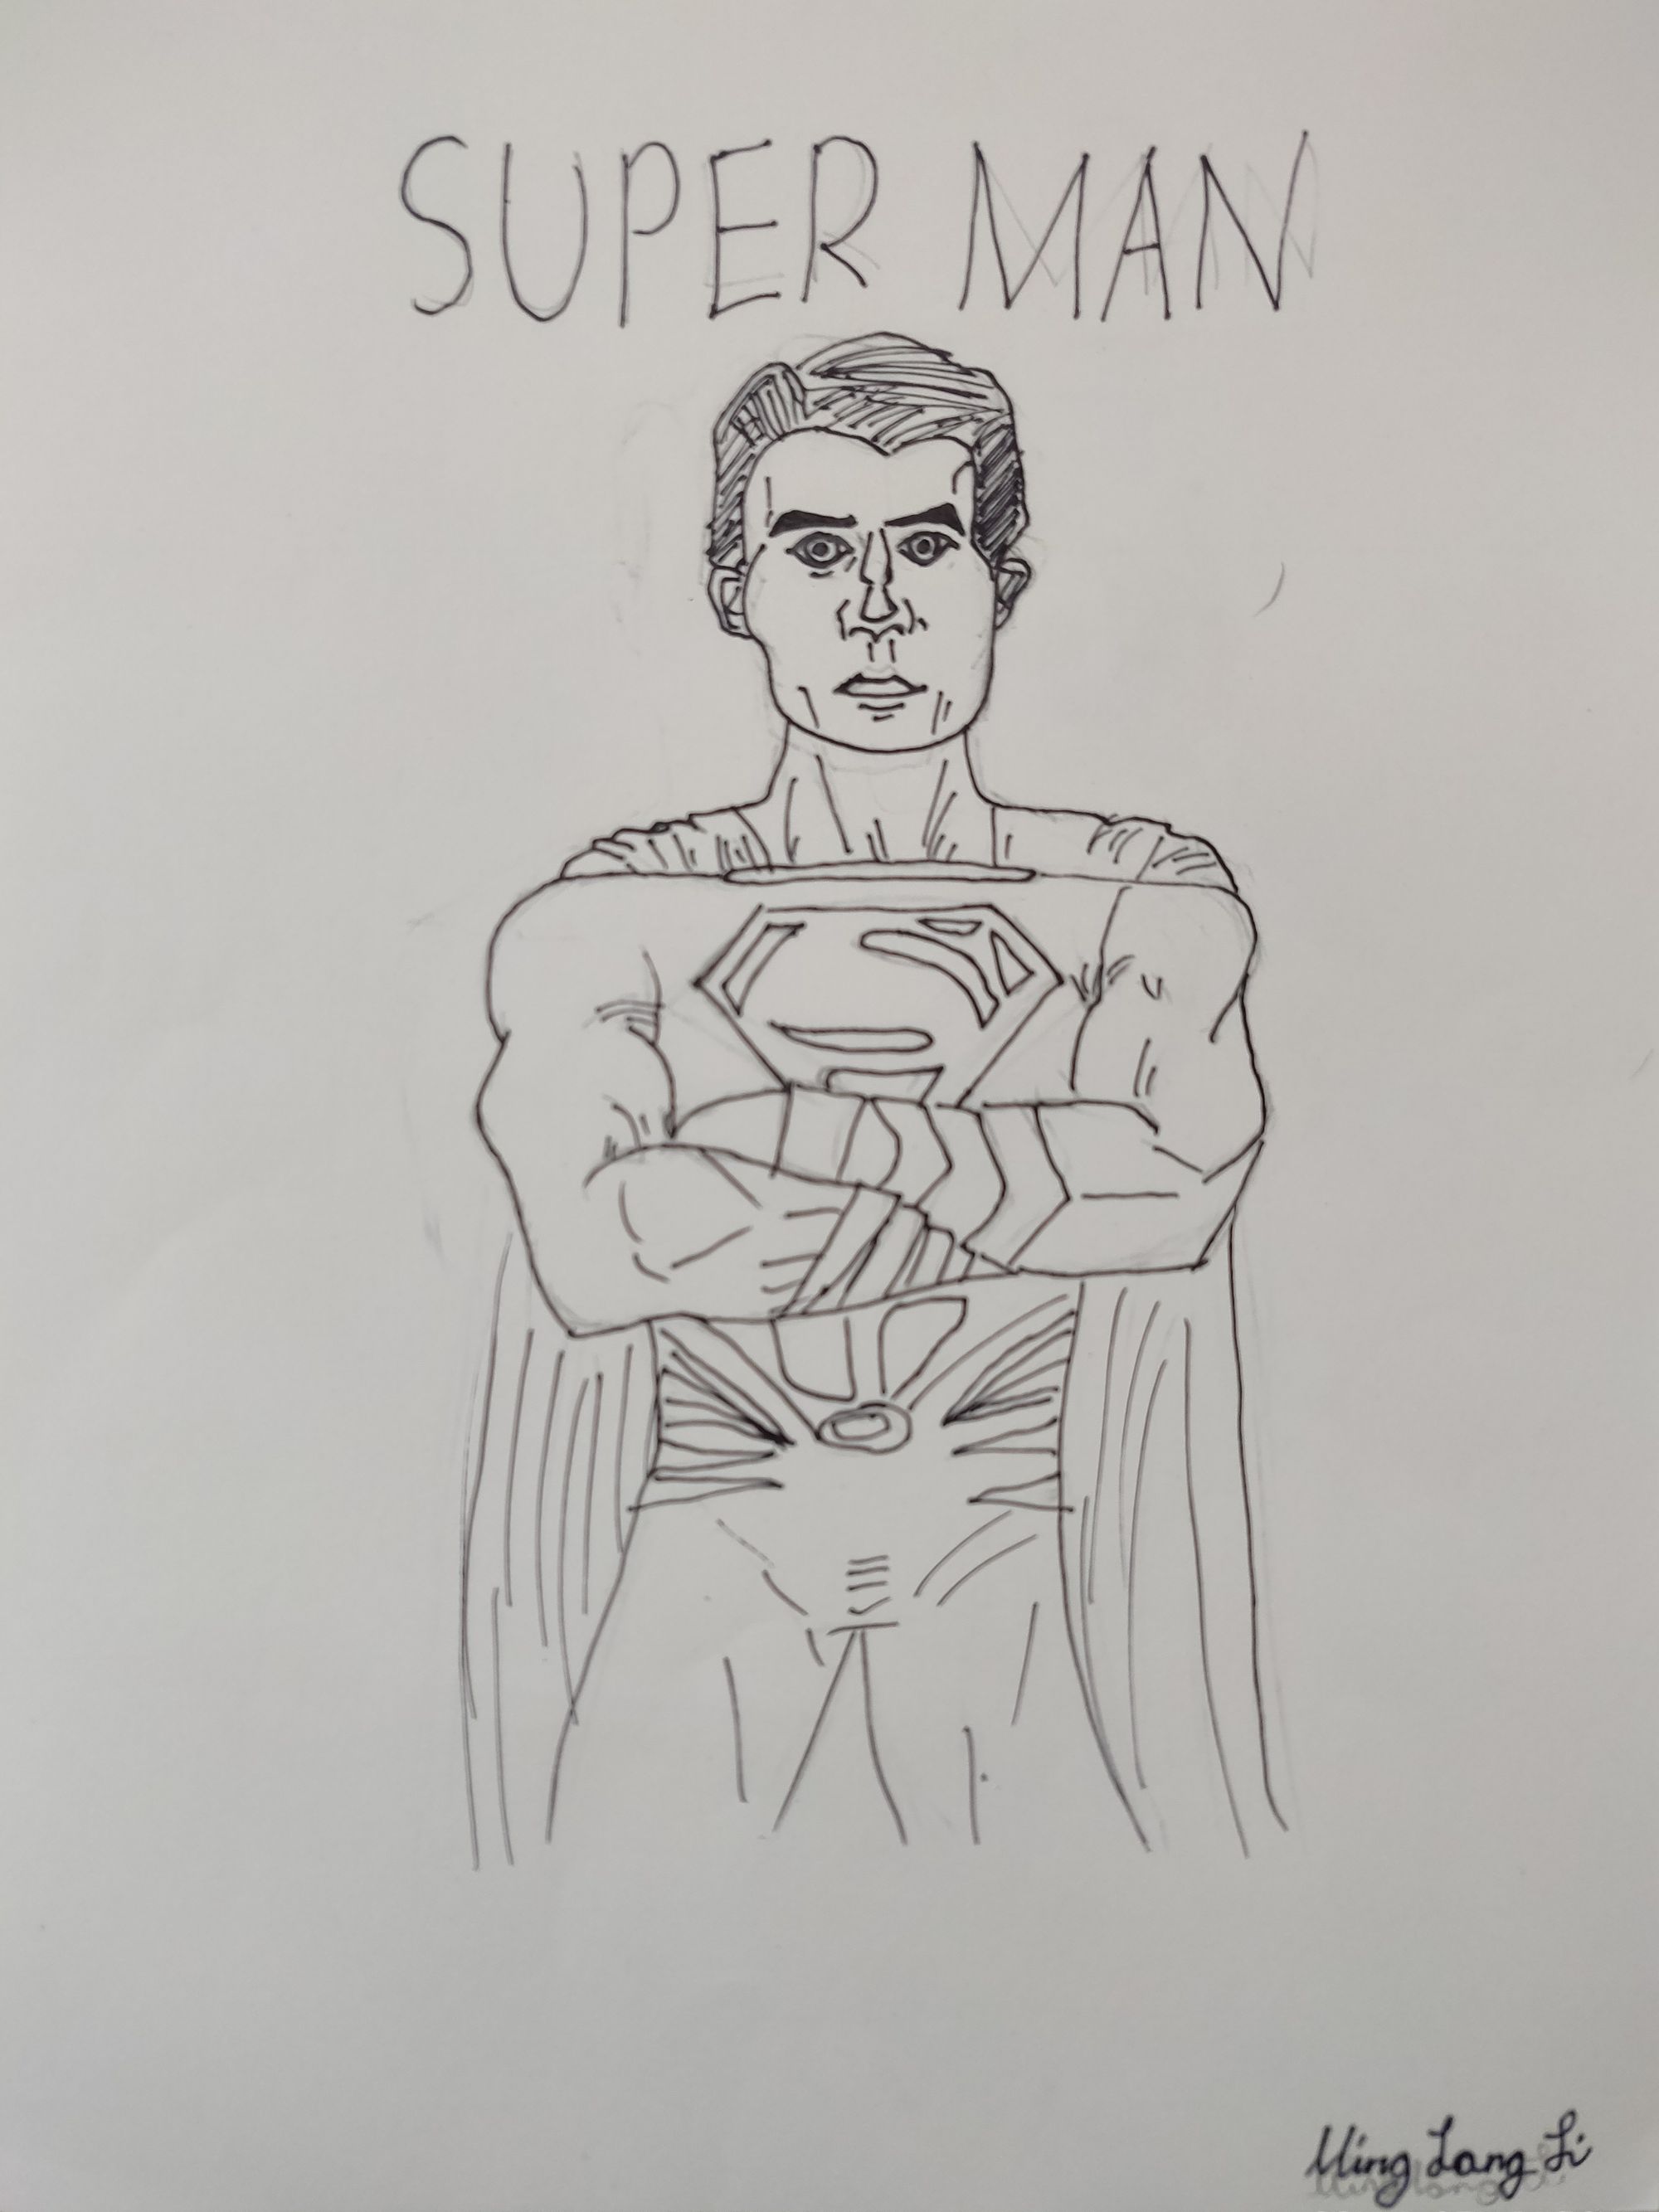 SUPER MAN
Ming Lang Li